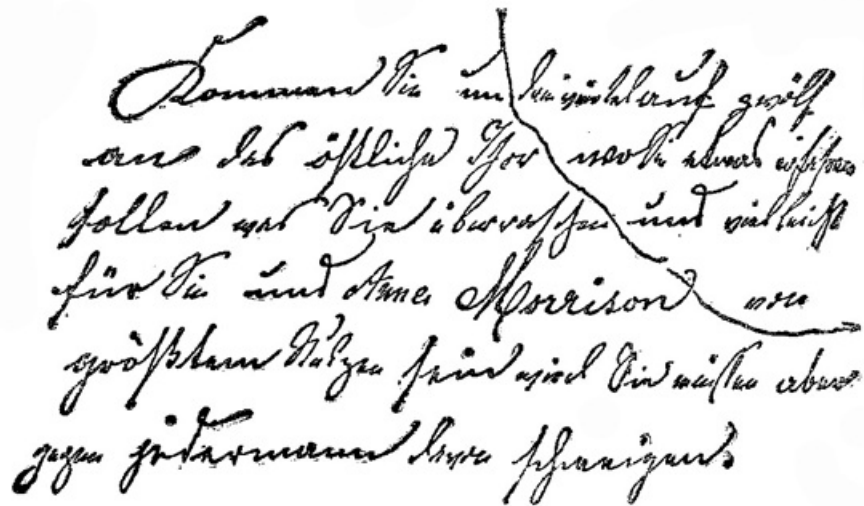 Kommen Sie um dreiviertel auf zwölf
an das östliche Thor wo Sie etwas erfahren
sollen was Sie überraschen und vielleicht
für Sie und Anne Morrison von
größtem Nutzen sein wird Sie müssen aber
gegen jedermann davon schweigen.